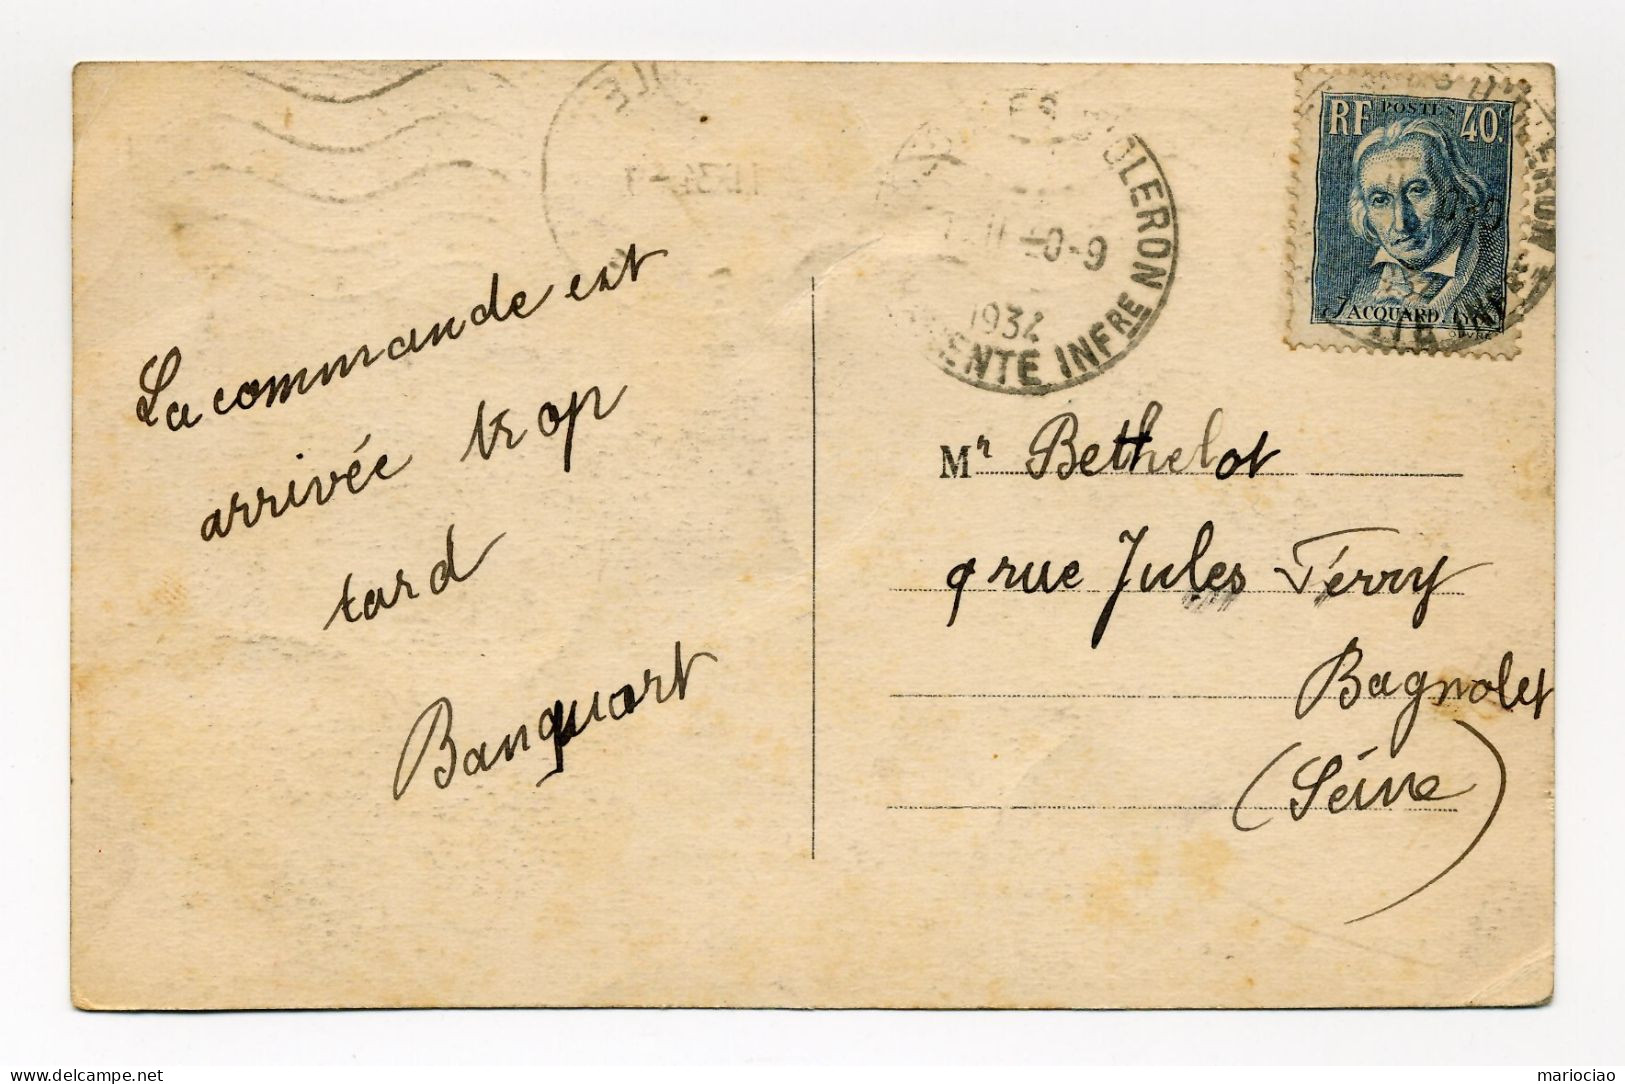 La commande est
arrivée trop
tard
Banquart
RF POSTES 40c
JACQUARD
OLERON
1934
ENTE INFRE
Mr Bethelot
9 rue Jules Ferry
Bagnolet
(Seine)
mariociao